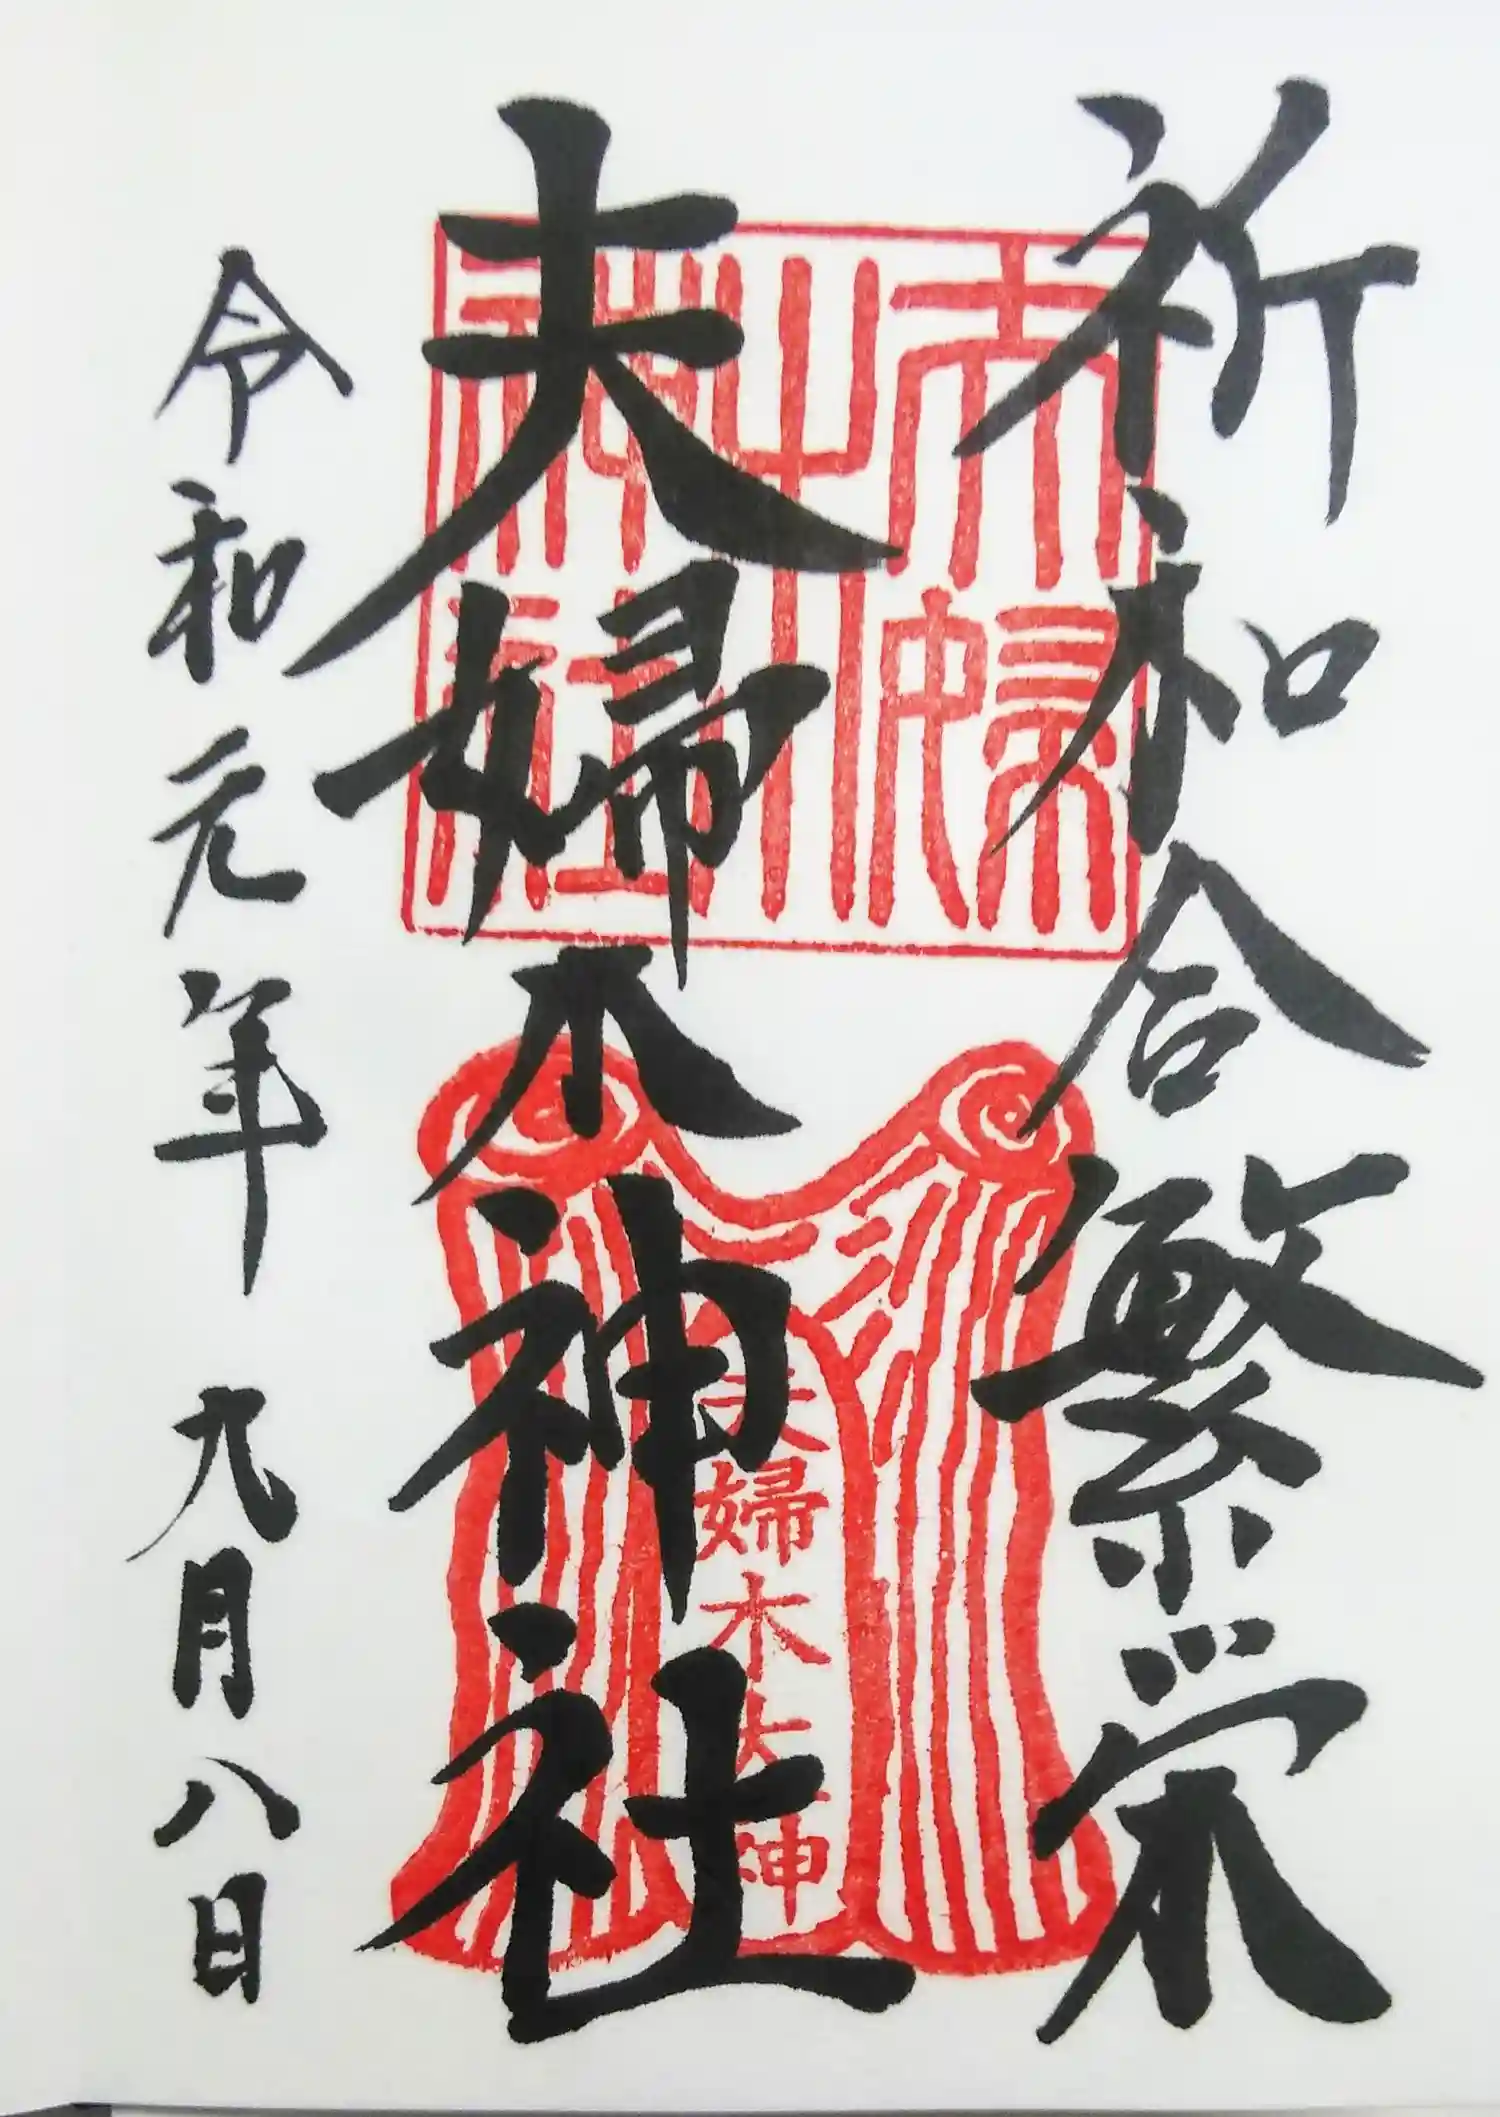 祈和合繁栄
夫婦木神社
令和元年 九月八日
夫婦木神社
夫婦木大神